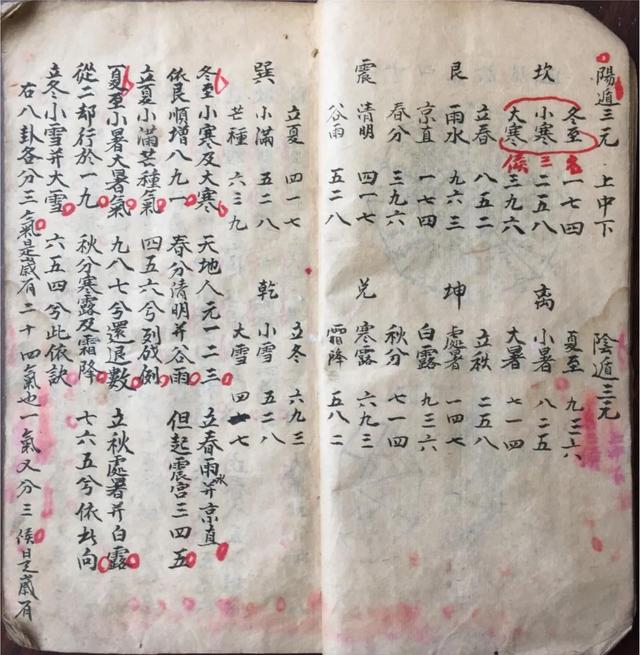 陽遁三元 上中下
坎
冬至 一七四
小寒 二五八
大寒 三九六
名三候
艮
立春 八五二
雨水 九六三
京直 一七四
震
春分 三九六
清明 四一七
谷雨 五二八
陰遁三元
離
夏至 九三六
小暑 八二五
大暑 七一四
坤
立秋 二五八
處暑 一四七
白露 九三六
兌
秋分 七一四
寒露 六九三
霜降 五八二
巽
立夏 四一七
小滿 五二八
芒種 六三九
乾
立冬 六九三
小雪 五二八
大雪 四一七
冬至小寒及大寒 天地人元一二三 立春雨水并京直
依艮順增八九一 春分清明并谷雨 但起震宮三四五
立夏小滿芒種氣 四五六兮列成例
夏至小暑大暑氣 九八七兮還退數 立秋處暑并白露
從二却行於一九 秋分寒露及霜降 七六五兮依此向
立冬小雪并大雪 六五四兮此依訣
右八卦各分三氣是歲有二十四氣也一氣又分三候是歲有